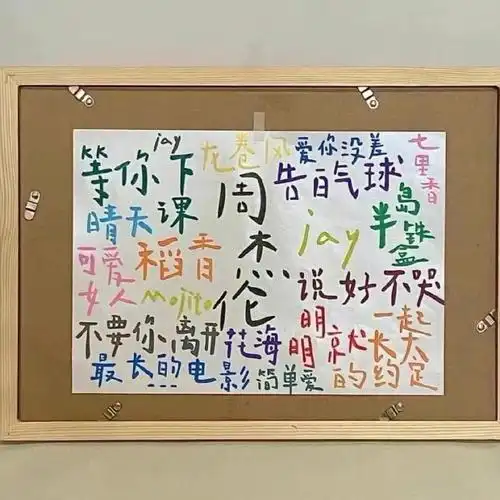 jay
等你下课
龙卷风
爱你没差
七里香
告白气球
周杰伦
jay
半岛铁盒
晴天
稻香
可爱女人
Mojito
说好不哭
不要你离开
花海
明明就
一起长大的约定
最长的电影
简单爱